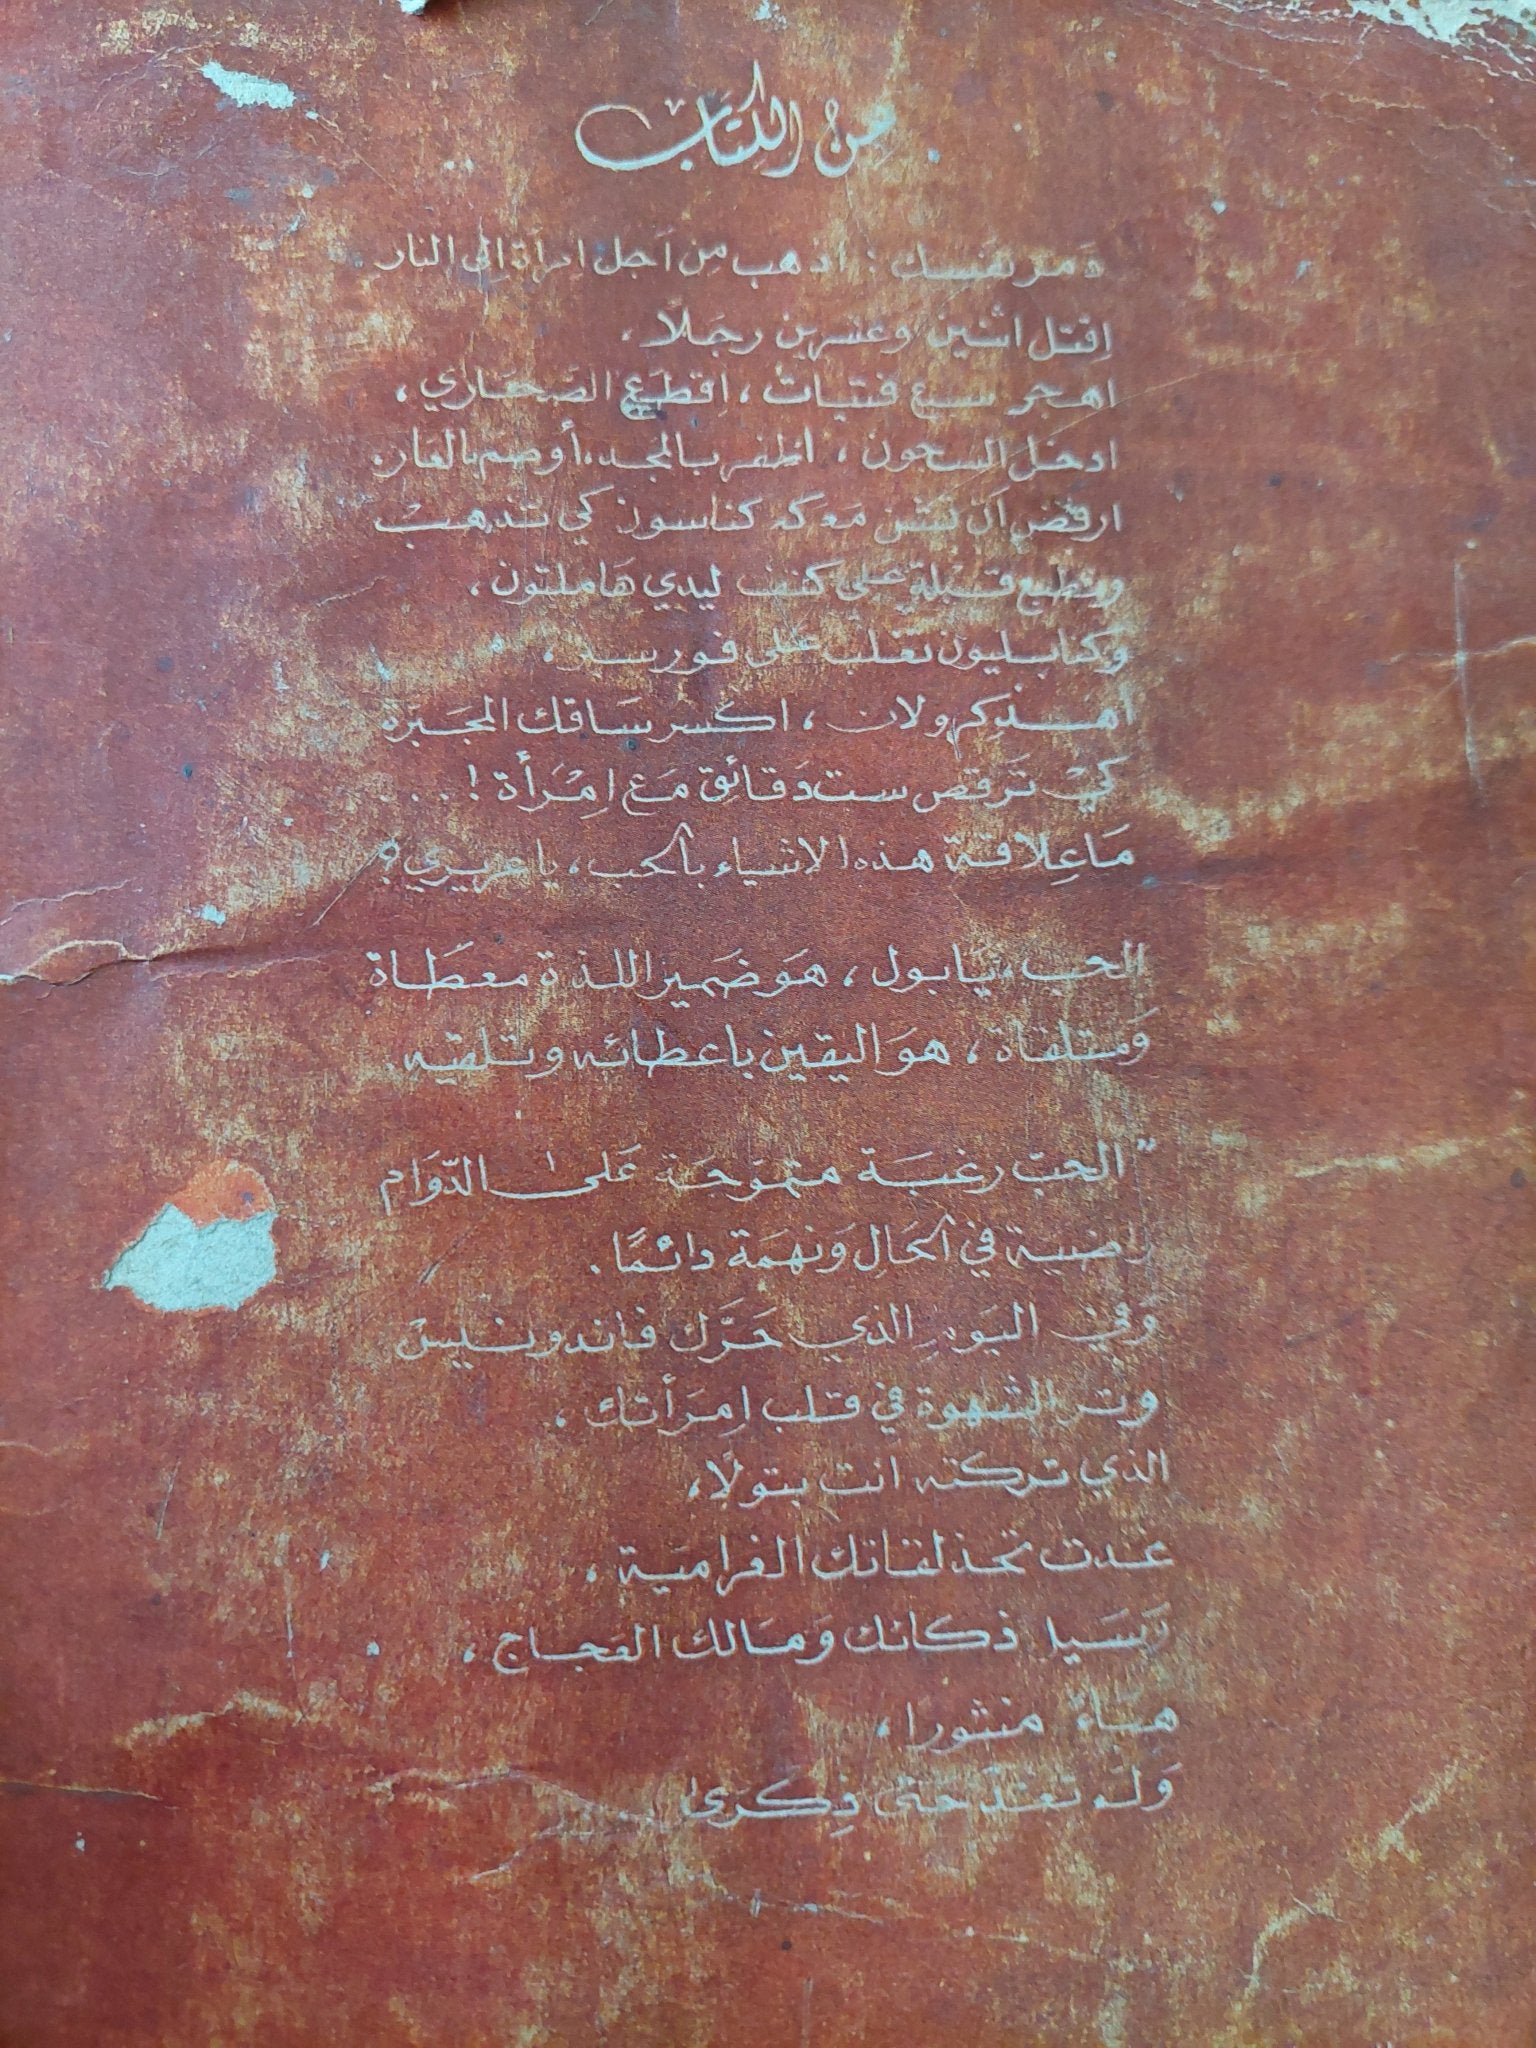 من الكتاب
اذهب من أجل امرأة إلى النار
اقتل اثنين وعشرين رجلاً،
اهجر سبع فتيات، اقطع الصحاري،
ادخل السجون، اظفر بالمجد، أو صم بالعار.
ارفض أن تشن معركة كناسون كي تذهب
وتطبع قبلة على كتف ليدي هاملتون،
وكنابليون تغلب على
ولان، اكسر ساقك المجبرة
كي ترقص ست دقائق مع امرأة!...
ما علاقة هذه الاشياء بالحب، يا عزيزي؟
الحب، يا بول، هو ضمير اللذة معطاة
ومتلقاة، هو اليقين باعطائه وتلقيه.
"الحب رغبة متموجة على الدوام
راضية في الحال ونهمة دائمًا.
وفي اليوم الذي حرّك فاندونيس
وتر الشهوة في قلب امرأتك،
الذي تركته انت بتولاً،
غدت لفتاتك الغرامية،
وسيل ذكائك ومالك العجاج،
هباءً منثورا،
ولم تعد حتى ذكرى